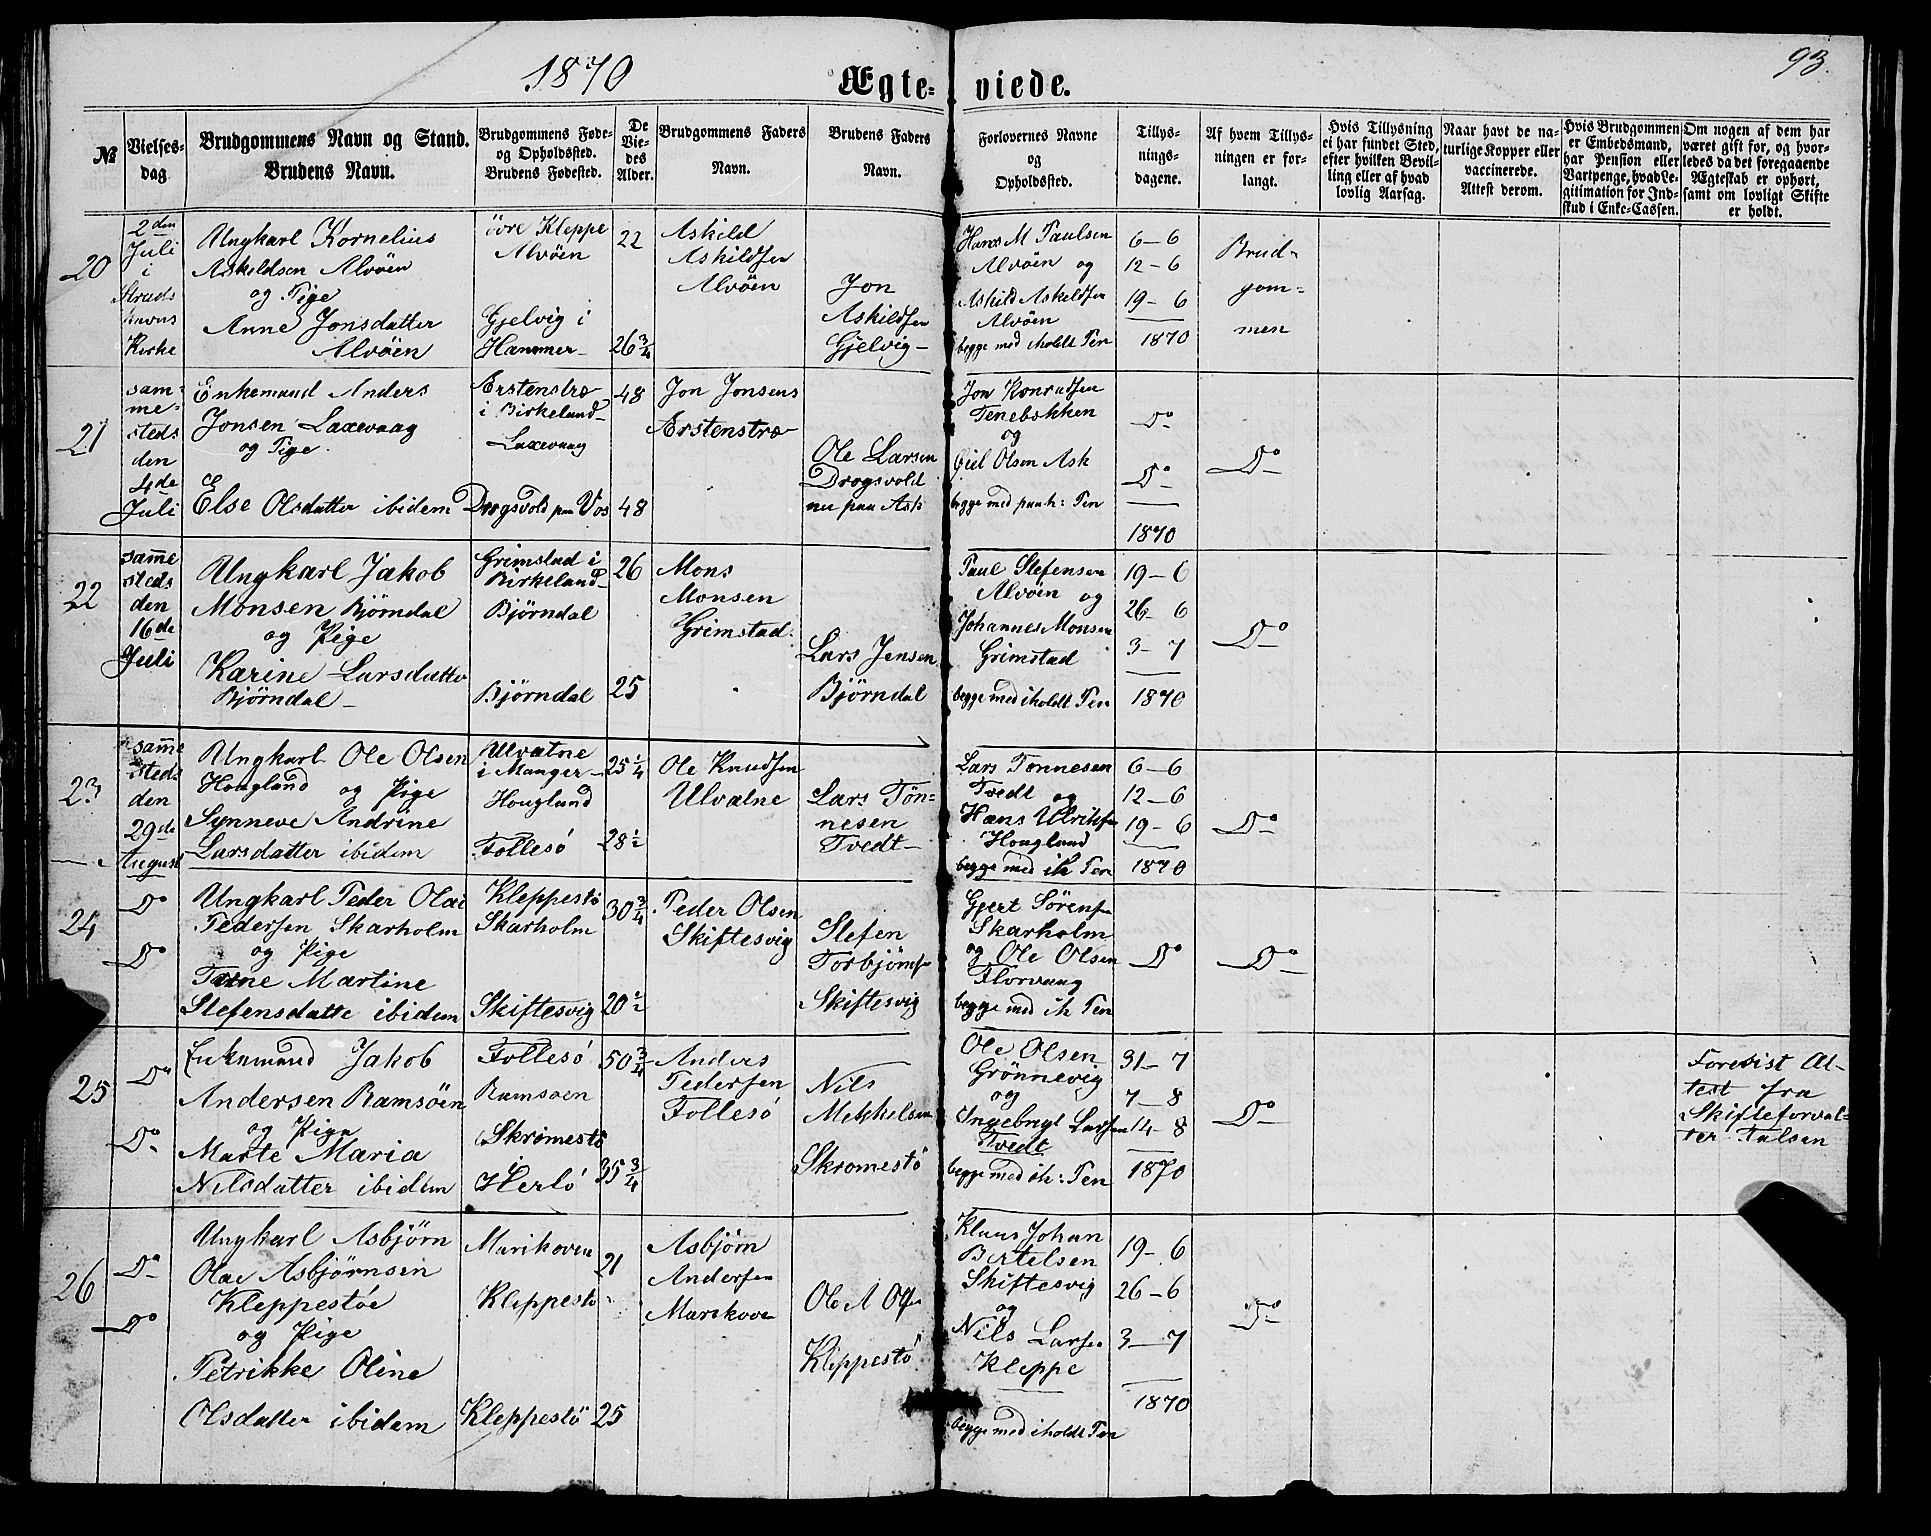 1870
Ægte-
viede.
93.
№
Vielses-
dag
Brudgommens Navn og Stand.
Brudens Navn.
Brudgommens Føde-
og Opholdssted.
Brudens Fødested.
De
Vie-
des
Alder.
Brudgommens Faders
Navn.
Brudens Faders
Navn.
Forlovernes Navne
og
Opholdssted.
Tillys-
nings-
dagene.
Af hvem Tillys-
ningen er for-
langt.
Hvis Tillysning
ei har fundet Sted,
efter hvilken Bevil-
ling eller af hvad
lovlig Aarsag.
Naar havt de na-
turlige Kopper eller
vaccinerede.
Attest derom.
Hvis Brudgommen
er Embedsmand,
har Pension eller
Vartpenge, hvad Le-
gitimation for Ind-
skud i Enke-Cassen.
Om nogen af dem har
været gift før, og hvor-
ledes da det foregaaende
Ægteskab er ophørt,
samt om lovligt Skifte
er holdt.
20
2den
Juli
i
Struds
havns
Kirke
Ungkarl Kornelius
Askeldsen Alvöen
og Pige
Anne Jonsdatter
Alvöen
övre Kleppe
Alvöen
Gjelvig i
Hammer
22
26 3/4
Askild
Askildsen
Alvöen
Jon
Askildsen
Gjelvig
Hans M Paulsen
Alvöen og
Askild Askeldsen
Alvöen
begge med iholdt Pen
6-6
12-6
19-6
1870
Brud-
gom-
men
21
sam-
me-
steds
den
4de
Juli
Enkemand Anders
Jonsen Laxevaag
og Pige
Else Olsdatter ibidem
Erstenstræ
i Birkeland
Laxevaag
Drogsvold paa Vos
48
48
Jon Jonsens
Erstenstræ
Ole Larsen
Drogsvold
nu paa Ask
Jon Konradsen
Tenebekken
og
Giel Olsen Ask
begge med paah: Pen
Do
Do
1870
Do
22
samme
steds
den
16de
Juli
Ungkarl Jakob
Monsen Björndal
og Pige
Karine Larsdatter
Björndal
Grimstad i
Birkeland
Björndal
Björndal
26
25
Mons
Monsen
Grimstad
Lars Jensen
Björndal
Paul Stefensen
Alvöen og
Johannes Monsen
Grimstad
begge med iholdt Pen
19-6
26-6
3-7
1870
Do
23
samme
steds
den
29de
August
Ungkarl Ole Olsen
Hougland og Pige
Synneve Andrine
Larsdatter ibidem
Ulvatne
i Manger
Hougland
Follesö
25 1/4
28 1/2
Ole Knudsen
Ulvatne
Lars Tön-
nesen
Tvedt
Lars Tönnesen
Tvedt og
Hans Ulriksen
Hougland
begge med ih Pen
6-6
12-6
19-6
1870
Do
24
Do
Do
Ungkarl Peder Olai
Pedersen Skarholm
og Pige
Martine
Stefensdatte ibidem
Kleppestö
Skarholm
Skiftesvig
30 3/4
20 1/2
Peder Olsen
Skiftesvig
Stefen
Torbjörnsen
Skiftesvig
Gjert Sörensen
Skarholm
og Ole Olsen
Florvaag
begge med ih Pen
Do
Do
25
Do
Do
Enkemand Jakob
Andersen Ramsöen
og Pige
Marte Maria
Nilsdatter ibidem
Follesö
Ramsöen
Skrömestö
i Herlö
50 3/4
35 3/4
Anders
Pedersen
Follesö
Nils
Mekkelsen
Skromestö
Ole Olsen
Grönnevig
og
Ingebrigt Larsen
Tvedt
begge med ih: Pen
31-7
7-8
14-8
1870
Do
Forevist At-
test fra
Skifteforval-
ter Falsen
26
Do
Do
Ungkarl Asbjörn
Olai Asbjörnsen
Kleppestöe
og Pige
Petrikke Oline
Olsdatter ibidem
Marikoven
Kleppestö
Kleppestö
21
25
Asbjörn
Andersen
Marikoven
Ole A Olsen
Kleppestö
Klaus Johan
Bertelsen
Skiftesvig
og
Nils Larsen
Kleppe
begge med iholdt Pen
19-6
26-6
3-7
1870
Do